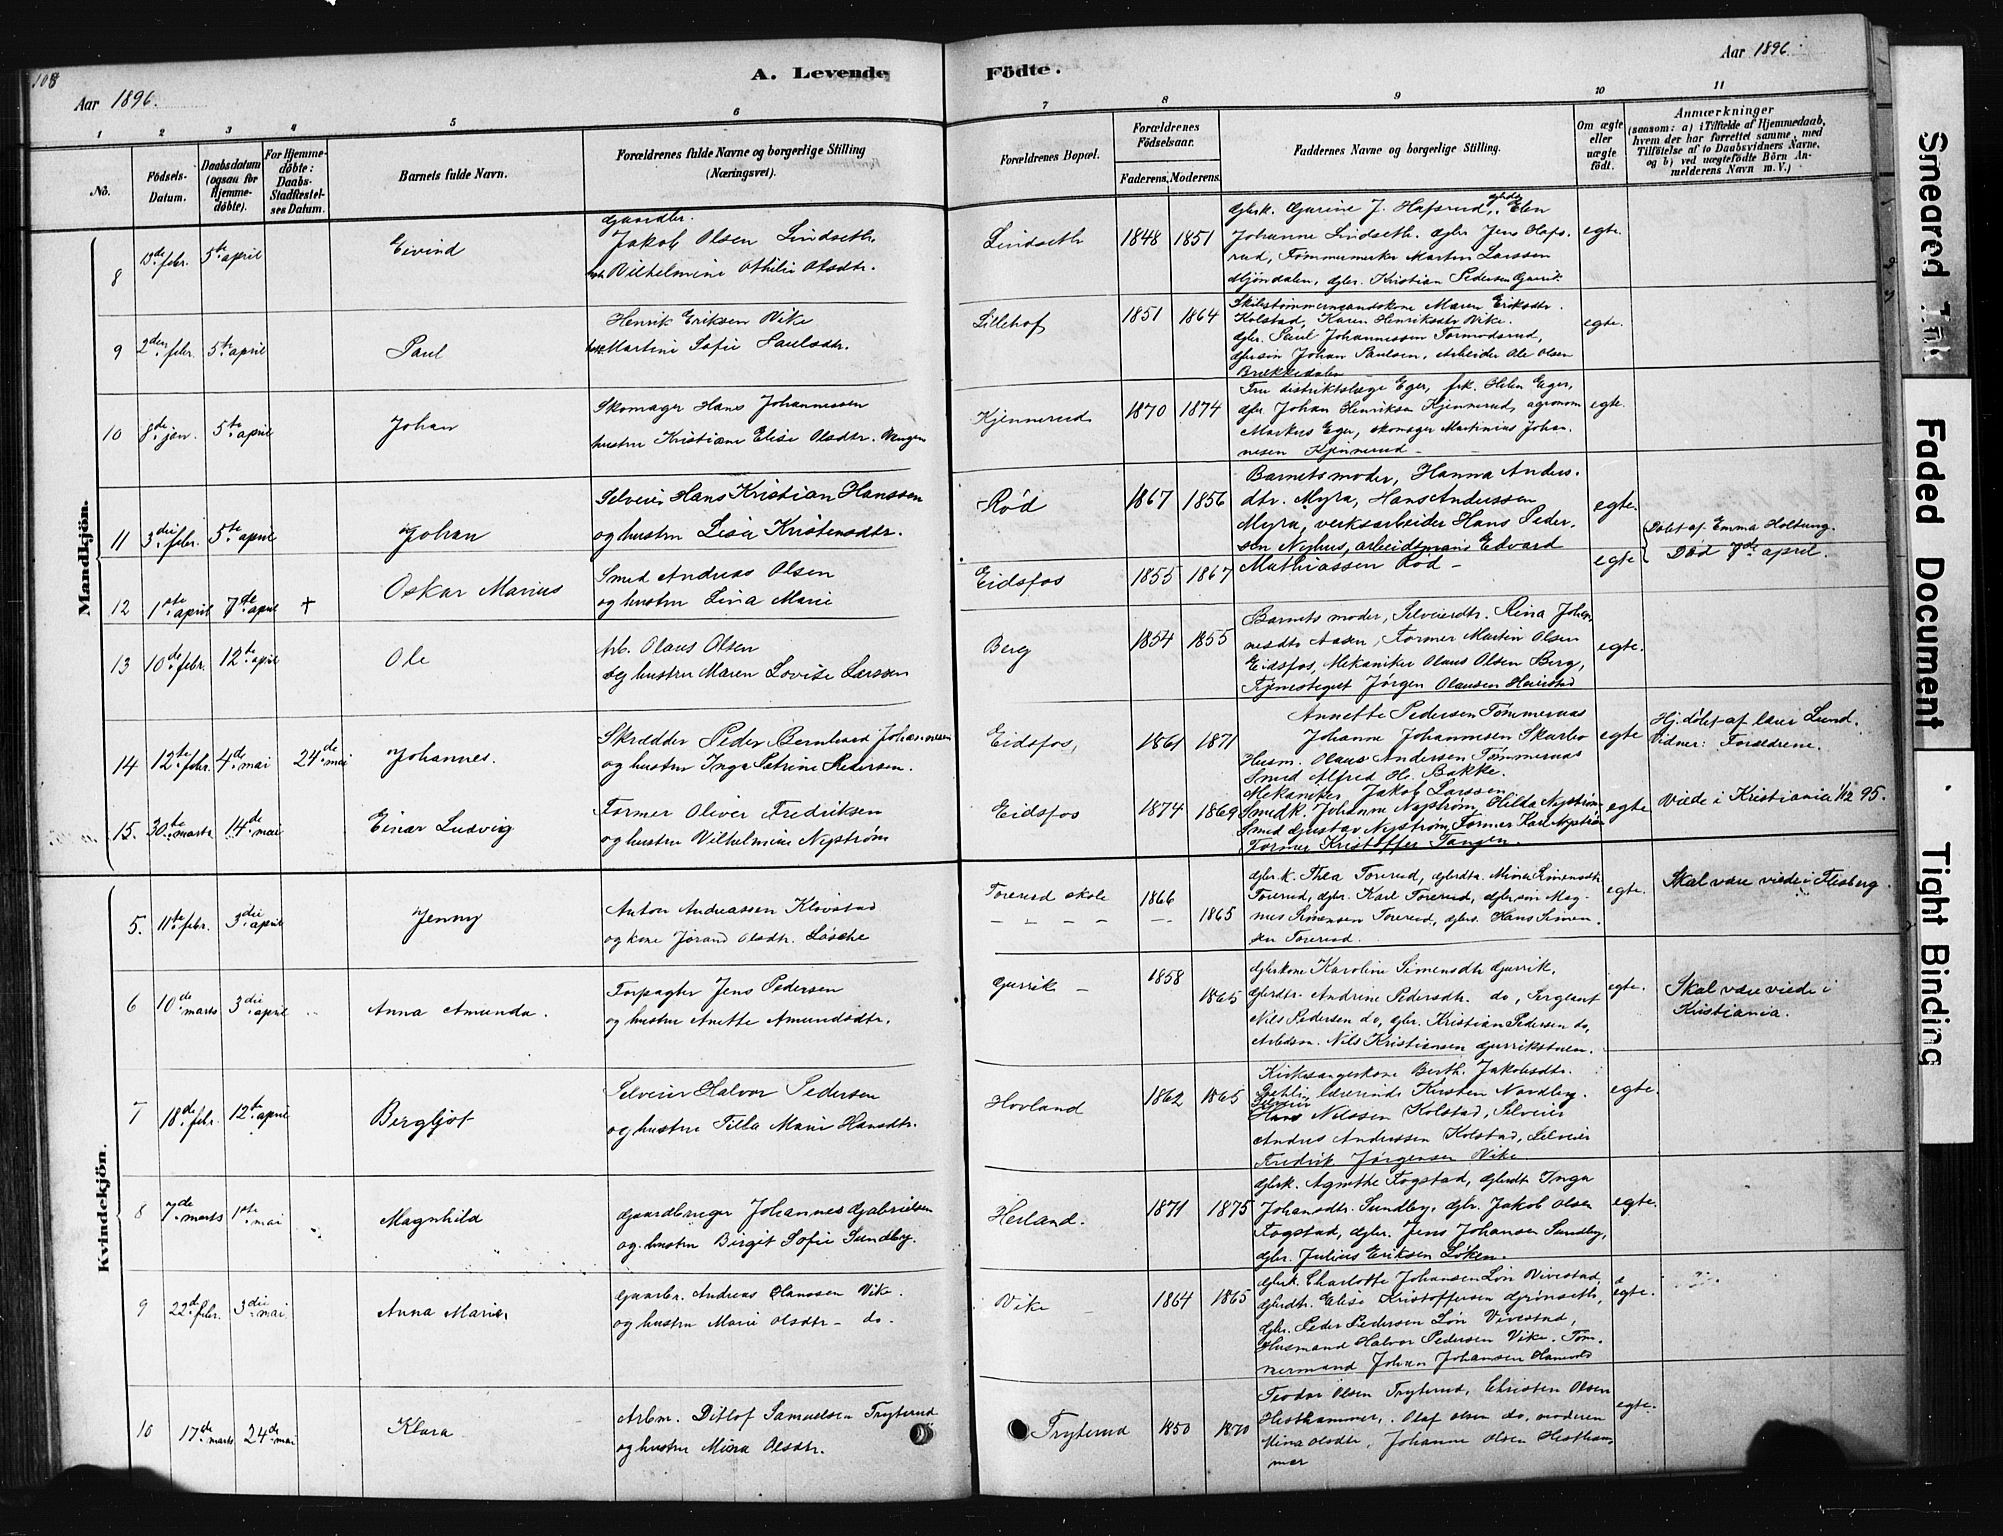 108
Aar 1896.
A. Levende
Födte.
Aar 1896.
1 2 3 4 5 6 7 8 9 10 11
No.
Födsels-
Datum.
Daabsdatum
(ogsaa for
Hjemme-
döbte).
For Hjemme-
döbte:
Daabs-
Stadfæstel-
ses Datum.
Barnets fulde Navn.
Forældrenes fulde Navne og borgerlige Stilling
(Næringsvei).
Forældrenes Bopæl.
Forældrenes
Födselsaar.
Faderens. Moderens.
Faddernes Navne og borgerlige Stilling.
Om ægte
eller
uægte
født.
Anmærkninger
(saasom: a) i Tilfælde af Hjemmedaab,
hvem der har forrettet samme, med
Tilföielse af to Daabsvidners Navne,
og b) ved uægtefödte Börn An-
melderens Navn m. V.)
Mandkjön.
8 13de febr. 5te april Eivind
Gaardbr.
Jakob Olsen Lindseth
Vilhelmine Othilie Olsdtr.
Lindseth 1848 1851
Gbrk. Gurine J. Hafsrud, Elen
Johanne Lindseth. Gbr. Jens Hafs-
rud, Tømmermerker Martin Larssen
Mjøndalen, gbr. Kristian Pedersen Gurrik
egte.
9 2den febr. 5te april Paul
Henrik Eriksen Vike
Martine Sofie Paulsdtr.
Lillehof 1851 1864
Maren Eriksdtr.
Kolstad, Karen Henriksdtr Vike.
gbr. Paul Johannessen Formodsrud,
gbrsøn Johan Paulsen, Arbeider Ole Olsen
Brækkedalen
egte.
10 8de jan. 5te april Johan
Skomager Hans Johannessen
hustru Kristiane Elise Olsdtr.
Kjennerud 1870 1874
Fru distriktslæge Eger, frk. Helen Eger,
gbr. Johan Henriksen Kjennerud, agronom
Markus Eger, skomager Martinius Johan-
nesen Kjennerud
egte.
11 3die febr. 5te april Johan
Selveier Hans Kristian Hanssen
og hustru Lisa Kristensdtr.
Rød 1867 1856
Barnets moder, Hanna Anders-
dtr. Myra, Hans Anderssen
Myra, verksarbeider Hans Peder-
sen Nyhus, arbeidsmand Edvard
Mathiassen Rød
egte.
12 1ste april 7de april † Oskar Marius
Smed Andreas Olsen
og hustru Lina Marie
Eidsfos 1855 1867
egte
Døbt af Emma Holtung.
Død 7de april.
13 10de febr. 12te april Ole
Olaus Olsen
og hustru Maren Lovise Larssen
Berg 1854 1855
Barnets moder, Selveierdtr. Rina Johan-
nesdtr Aasen, Former Martin Olsen
Eidsfos, Mekaniker Olaus Olsen Berg,
Tjenestegut Jørgen Olausen
egte.
14 12te febr. 4de mai 24de mai Johannes.
Skrædder Peder Bernhard Johannessen
og hustru Inga Petrine Pedersen.
Eidsfos, 1861 1871
Annette Pedersen Tømmeraas
Johanne Johannesen Skarbo
Husm. Olaus Andersen Tømmeraas
Smed Alfred H. Bakke.
Mekaniker Jakob Larssen
egte
Hj. døbt af lærer Lund.
Vidner: Forældrene.
15. 30te marts 14de mai Einar Ludvig
Former Oliver Fredriksen
og hustru Vilhelmine Nystrøm
Eidsfos 1874 1869
Smedk. Johanne Nystrøm, Hilda Nystrøm
Smed Gustav Nystrøm, Former Karl Nystrøm
Former Kristoffer Tangen.
egte
Viede i Kristiania 1/12 95.
Kvindekjön.
5. 11te febr. 3die april Jenny
Anton Andreassen Klovstad
og kone Jørand Olsdtr. Læsche
Torerud skole 1866 1865
gbr.k. Thea Torerud, gbrdtr. Mina Simensdtr.
Torerud, gbr. Karl Torerud, gbr. søn Mag-
nus Simensen Torerud, gbrs. Hans Simen-
sen Torerud.
egte.
Skal være viede i Flesberg.
6 10de marts 3die april Anna Amunda.
Forpagter Jens Pedersen
og hustru Anette Amundsdtr.
Gurrik 1858 1865
Gbrkone Karoline Simensdtr Gurrik,
Gbrdtr. Andrine Pedersdtr. do, Sergeant
Nils Pedersen do, gbr. Kristian Pedersen do,
Arbdsm. Nils Kristiansen Gurrikstuen.
egte.
Skal være viede i
Kristiania.
7 18de febr. 12te april Bergljot
Selveier Halvor Pedersen
og hustru Tilla Marie Hansdtr.
Hovland 1862 1865
Kirkesangerkone Berth. Jakobsdtr.
Dehli, lærerinde Kirsten Nordberg.
Selveier
Hans Nilssen Kolstad, Selveier
Andres Anderssen Kolstad, Selveier
Fredrik Jørgensen Vike.
egte.
8 7de marts 1ste mai Magnhild
Gaardbruger Johannes Gabrielsen
og hustru Birgit Sofie Sundby.
Heiland. 1871 1875
Gbrk. Agnethe Fogstad, gbrdtr Inga
Johansdtr. Sundby, gbr. Jakob Olsen
Fogstad, gbr. Jens Johansen Sundby,
gbr. Julius Eriksen Løken.
egte.
9 22de febr. 3die mai Anna Marie,
Gaardbr. Andreas Hanssen Vike.
og hustru Marie Olsdtr – do.
Vike 1864 1865
Gbrk. Charlotte Johansen Løn Vivestad,
Gbrdtr. Elise Kristoffersen Grønseth,
Gbr. Peder Pedersen Løn Vivestad,
Husmand Halvor Pedersen Vike. Tøm-
mermand Johan Johansen Hanevold
egte.
10 17de marts 24de mai Klara
Arbm. Ditlof Samuelsen Tryterud
og hustru Mina Olsdtr.
Tryterud 1850 1870
Teodor Olsen Tryterud, Christen Olsen
Hesthammer, Olaf Olsen do, moderen
Mina Olsdtr, Johanne Olsen Hestham-
mer
egte.
Smeared Ink
Faded Document
Tight Binding